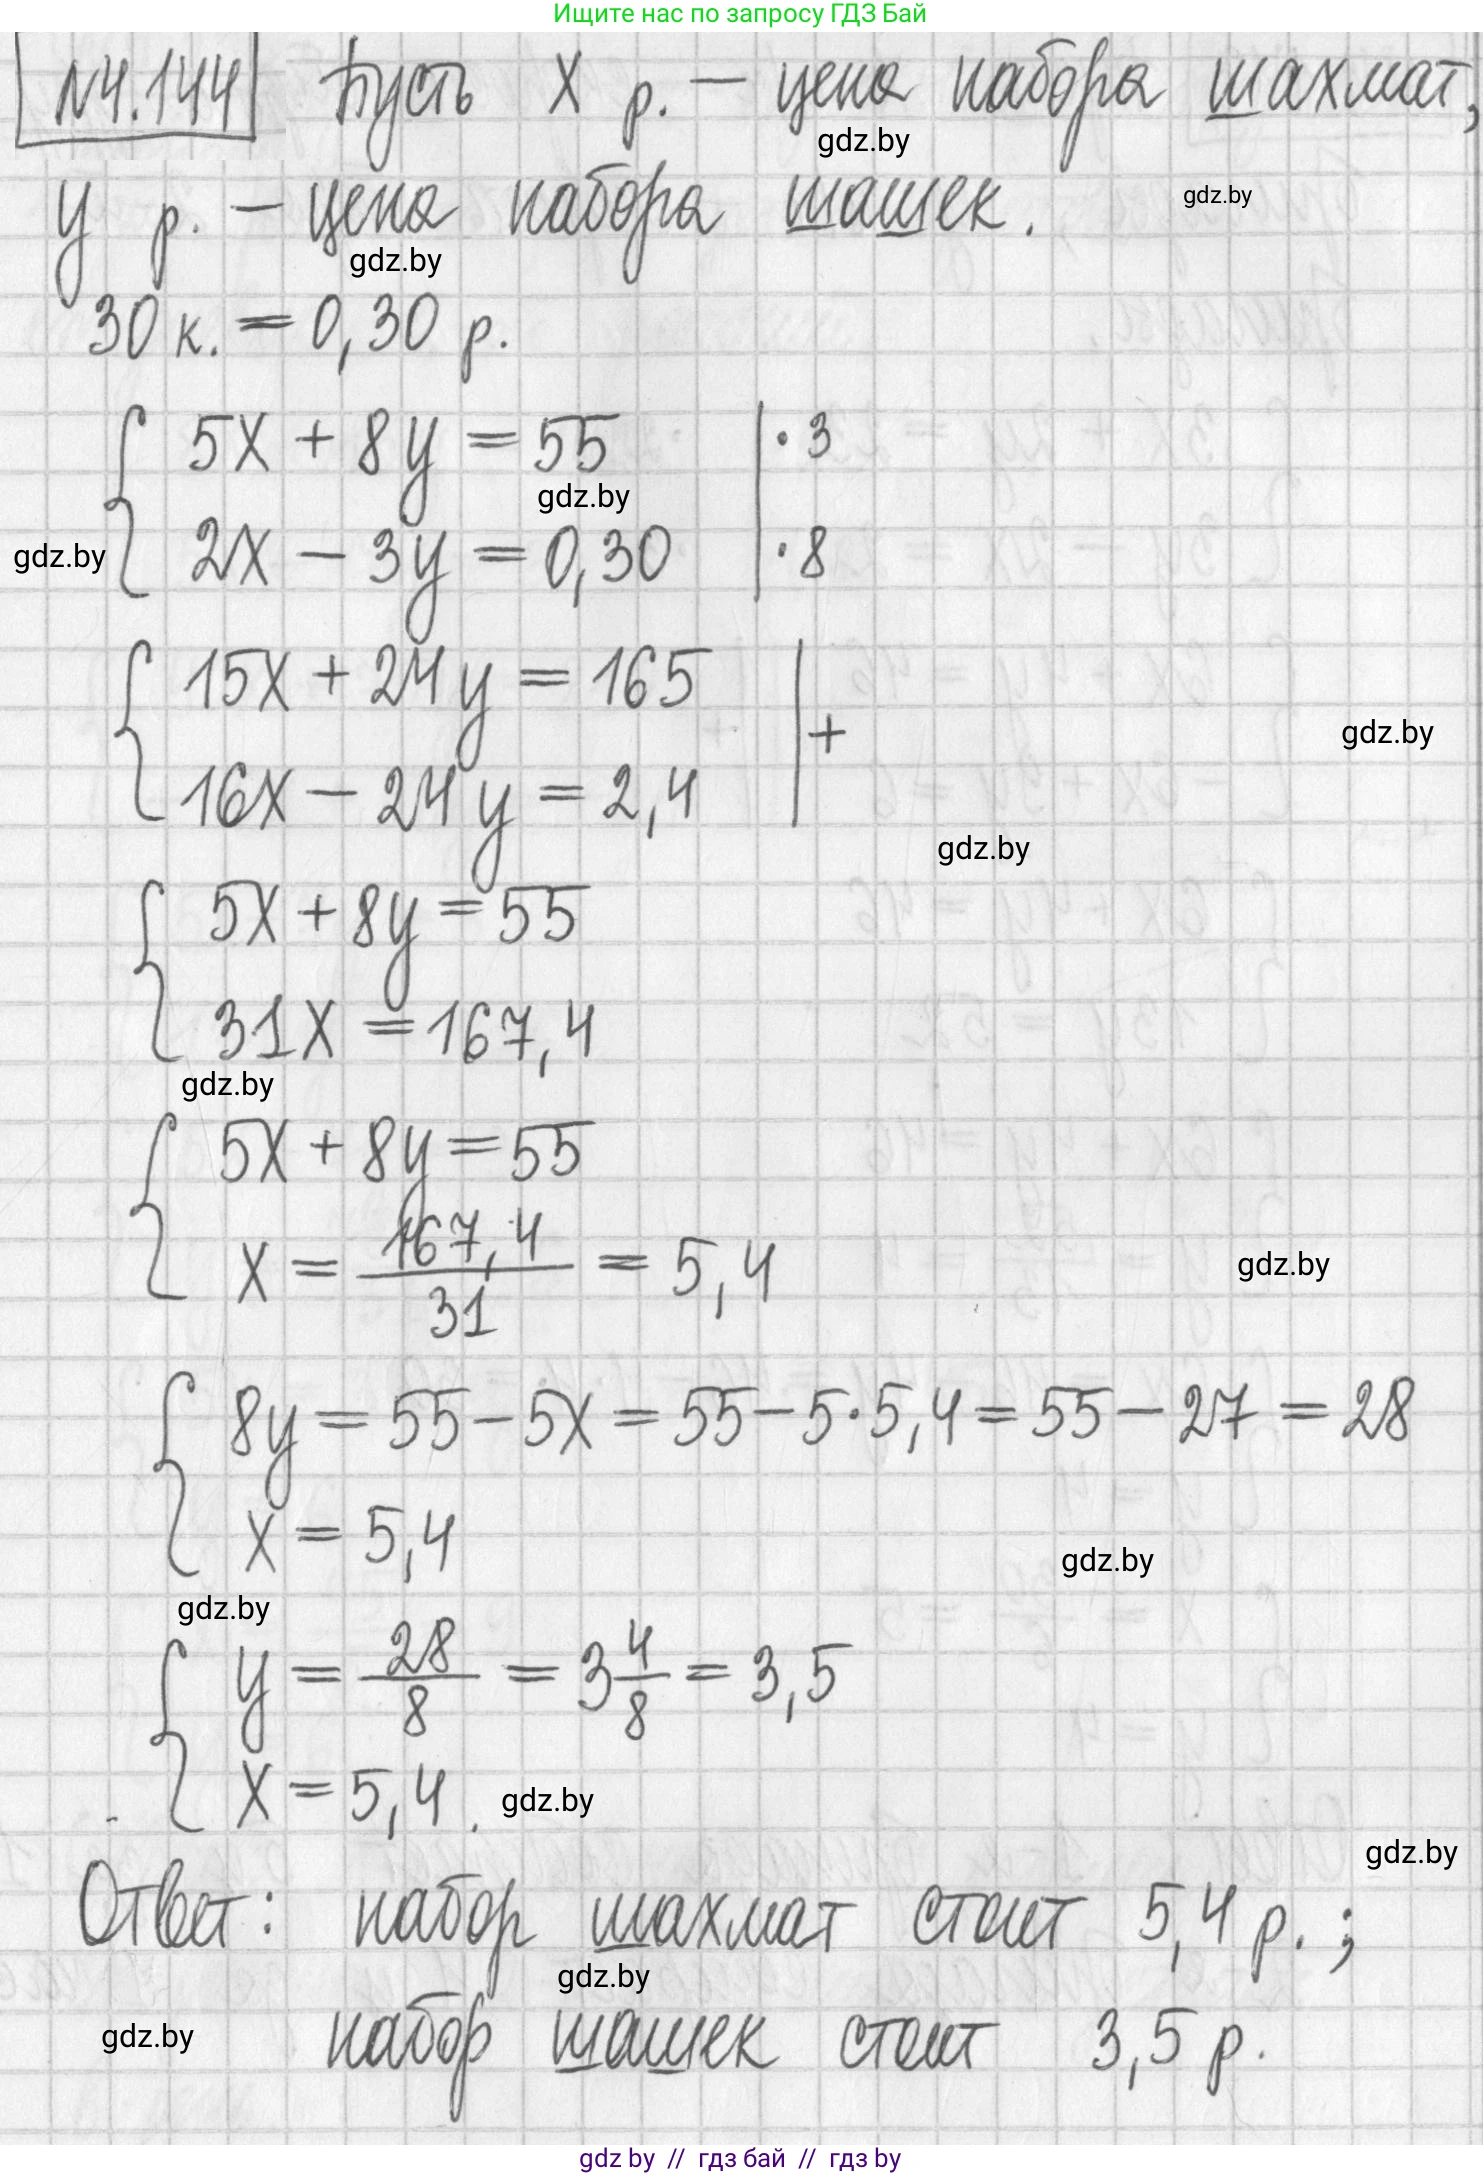 Ищите нас по запросу ГДЗ Бай
N4.144 Пусть x р. — цена набора шахмат,
gdz.by
y р. — цена набора шашек.
gdz.by
gdz.by
30 к. = 0,30 р.
{ 5x + 8y = 55 | · 3
gdz.by
gdz.by
2x − 3y = 0,30 | · 8
{ 15x + 24y = 165 | +
gdz.by
16x − 24y = 2,4
gdz.by
{ 5x + 8y = 55
31x = 167,4
gdz.by
{ 5x + 8y = 55
x = 167,4/31 = 5,4
gdz.by
{ 8y = 55 − 5x = 55 − 5·5,4 = 55 − 27 = 28
x = 5,4
gdz.by
gdz.by
{ y = 28/8 = 3 4/8 = 3,5
x = 5,4.
gdz.by
gdz.by
Ответ: набор шахмат стоит 5,4 р.;
gdz.by
набор шашек стоит 3,5 р.
gdz.by
gdz.by // гдз бай // гдз by